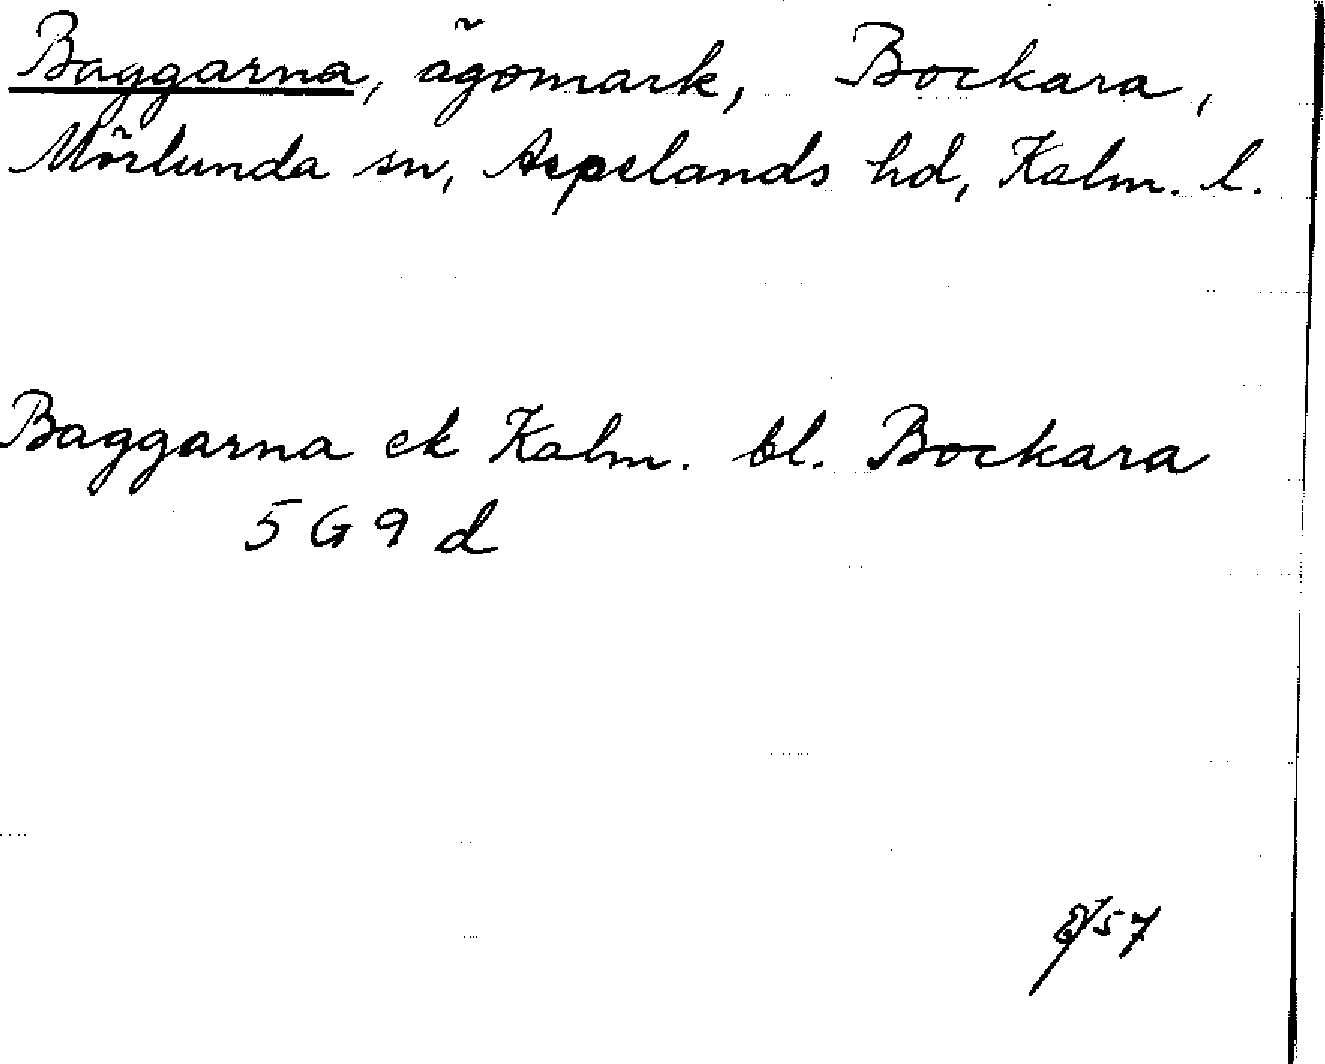 Baggarna, ägomark, Bockara,
Mörlunda sn, Aspelands hd, Kalm. l.
Baggarna ek Kalm. bl. Bockara
5 G 9 d
57